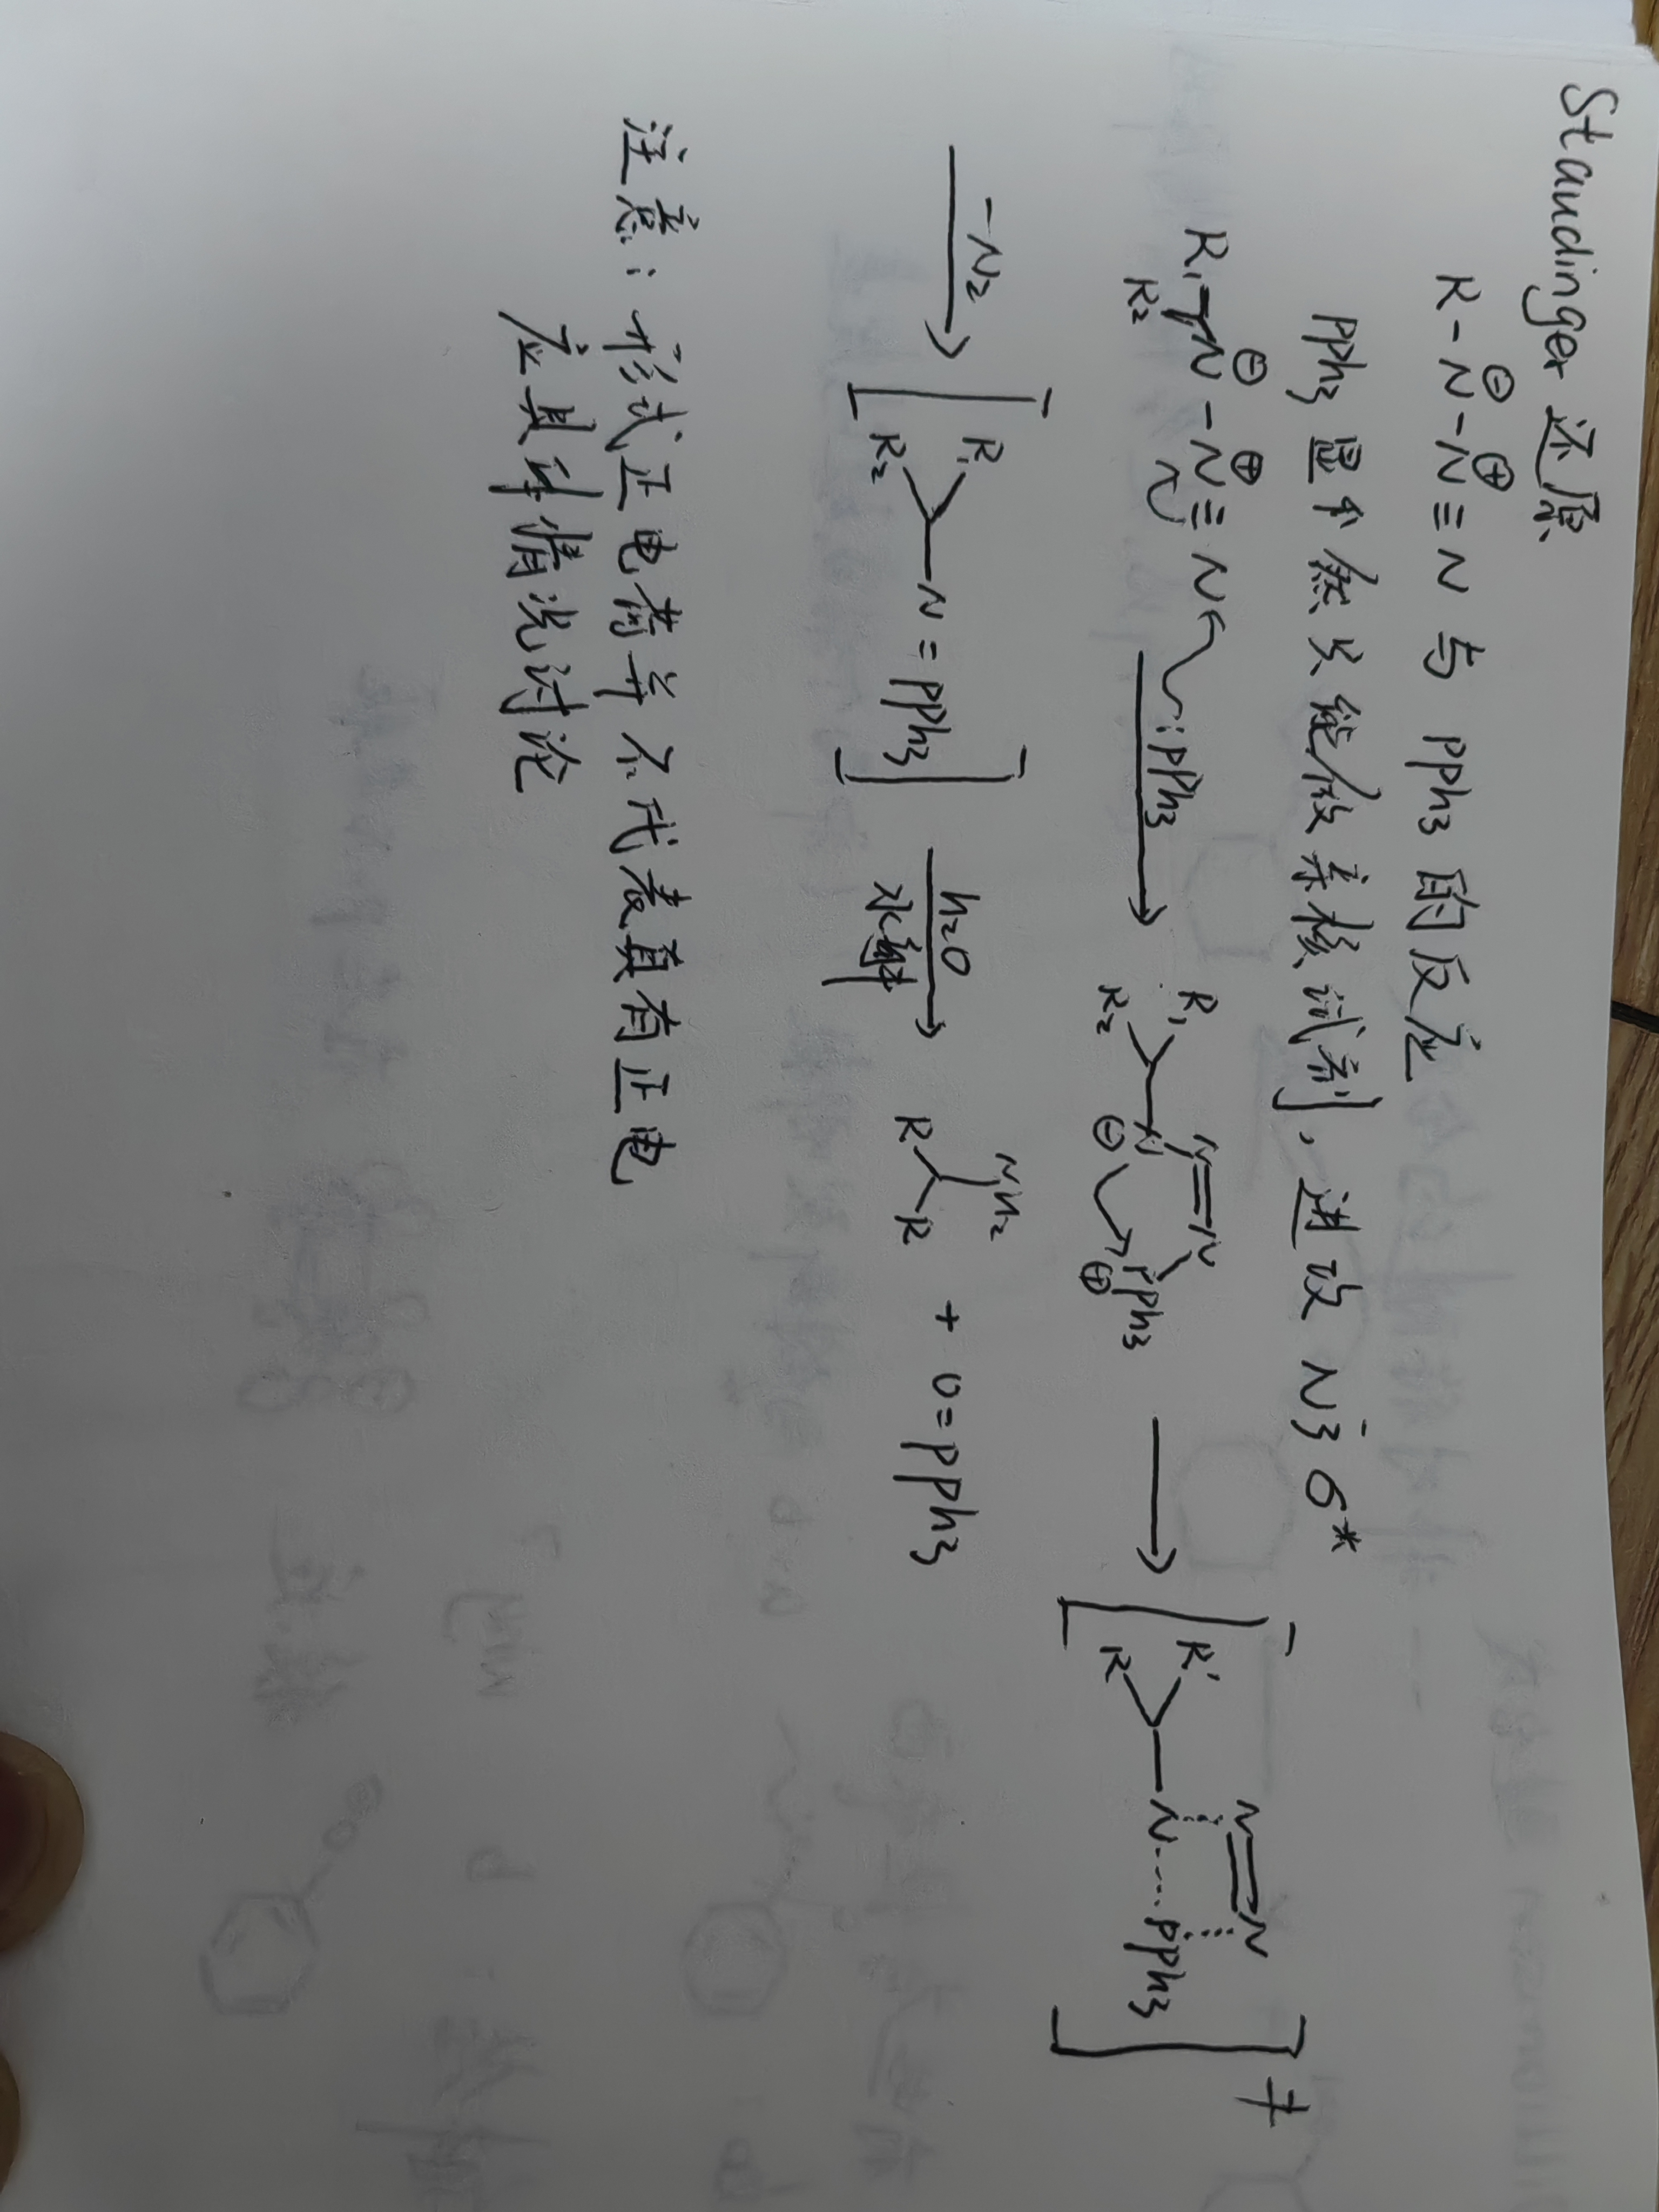 Staudinger 还原
R-N⊖-N⊕≡N 与 PPh3 的反应
PPh3 显然只能做亲核试剂, 进攻 N3⁻ σ*
R1 R2 N⊖-N⊕≡N :PPh3 → R1 R2 N⊖ N=N PPh3⊕ → [R' R N N=N PPh3]‡
-N2 → [R1 R2 N=PPh3] h2O 水解 → R R NH2 + O=PPh3
注意: 形式正电荷并不代表真有正电
应具体情况讨论